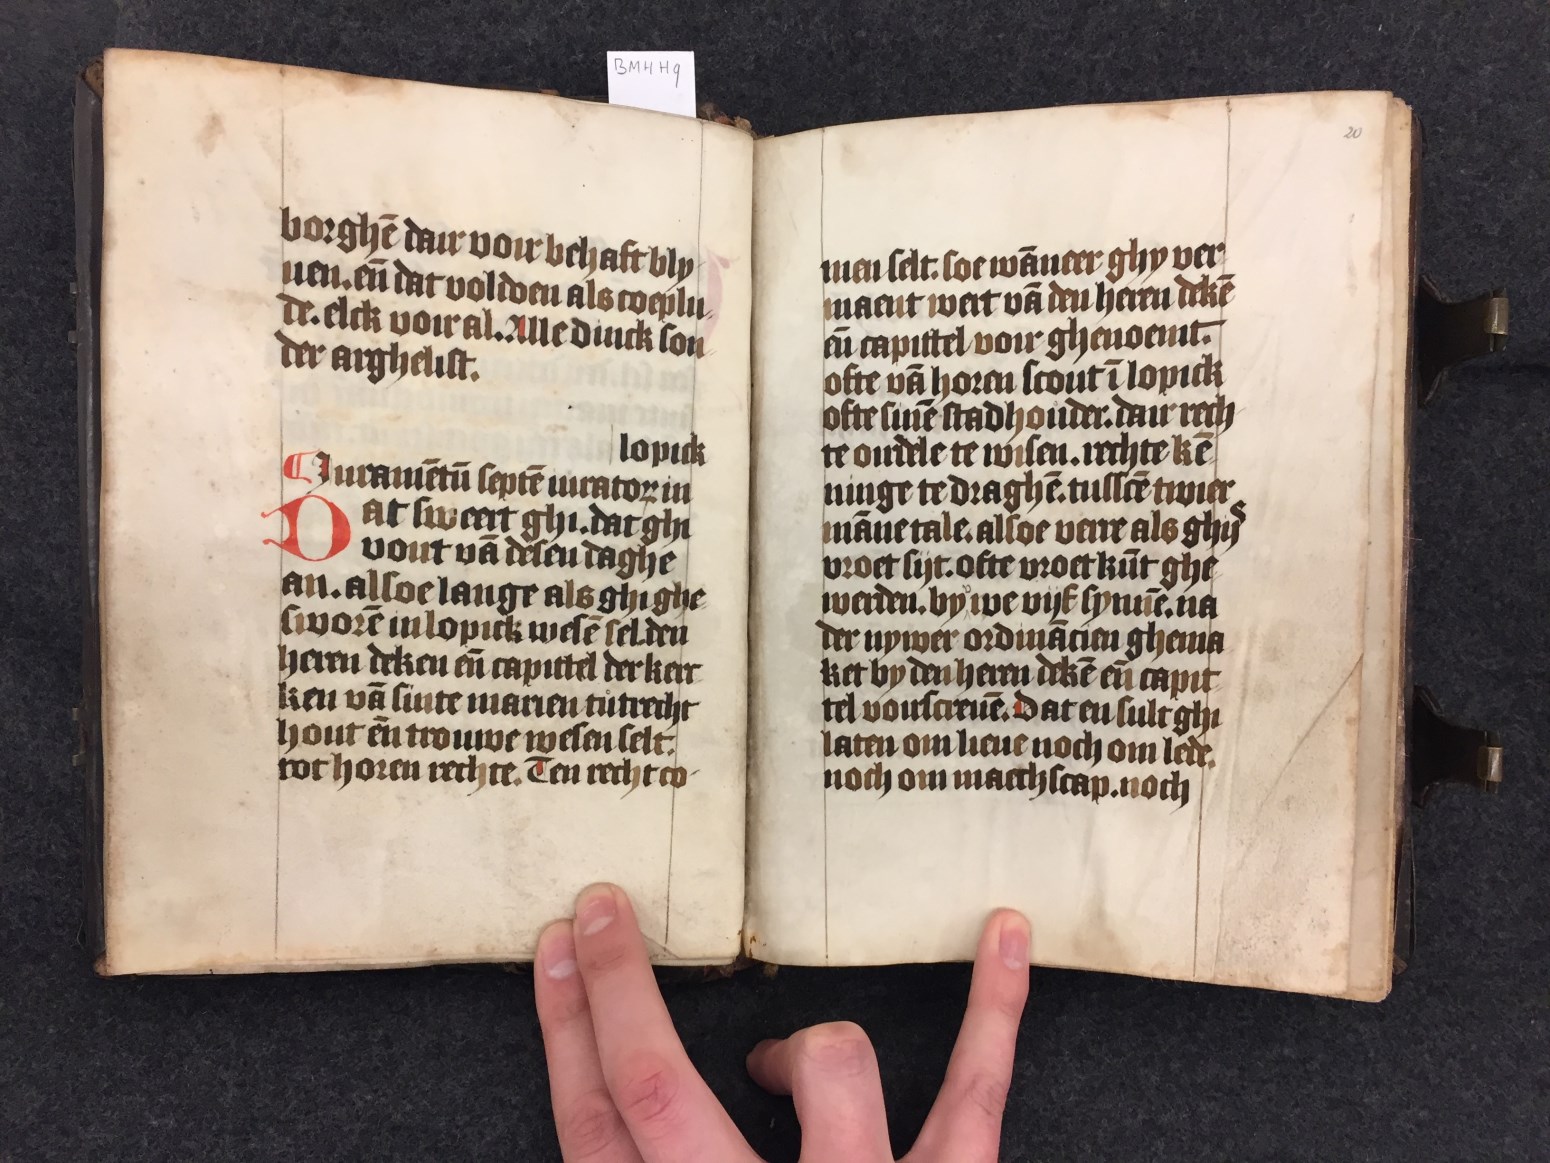 BMH H9
borghē dair voir behaft bly
uen. eñ dat voldoen als coeplu
de. elck voir al. Alle dinck son
der arghelist.
lopick
Iuramētū septē iuratoꝝ in
Dat sweert ghi. dat ghi
vout vā desen daghe
an. alsoe lange als ghi ghe
sworē in lopick wesē sel. den
heren deken eñ capittel der kerc
ken vā sinte marien tutrecht
hout eñ trouwe wesen selt.
tot horen rechte. Ten recht co
20
men selt. soe wāneer ghy ver
maent wert vā den heren dekē
eñ capittel voir ghenoemt.
ofte vā horen scout ī lopick
ofte sinē stadhouder. dair rech
te oirdele te wisen. rechte kē
ninge te draghē. tusscē twier
māne tale. alsoe verre als ghijs
vroet sijt. ofte vroet kūt ghe
werden. by we vijf synnē. na
der nywer ordināncien ghema
ket by den heren dekē eñ capit
tel voirscreuē. Dat en sult ghi
laten om lieue noch om lede.
noch om maechscap. noch